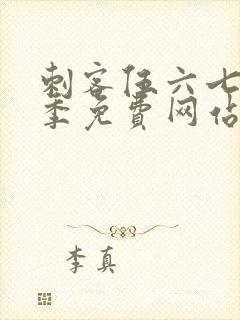 刺客伍六七
季免費网站
李真